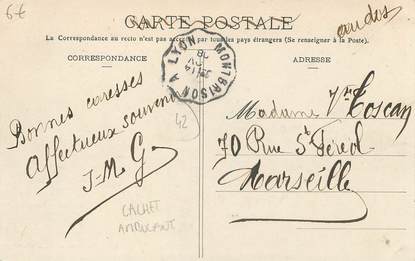 6€
CARTE POSTALE
au dos
La Correspondance au recto n'est pas acceptée par tous les pays étrangers (Se renseigner à la Poste)
CORRESPONDANCE
ADRESSE
MONTBRISON A LYON
Bonnes caresses
Affectueux souvenir
J-M G.
42
CACHET
AMBULANT
Madame Vve Toscan
70 Rue St Féréol
Marseille